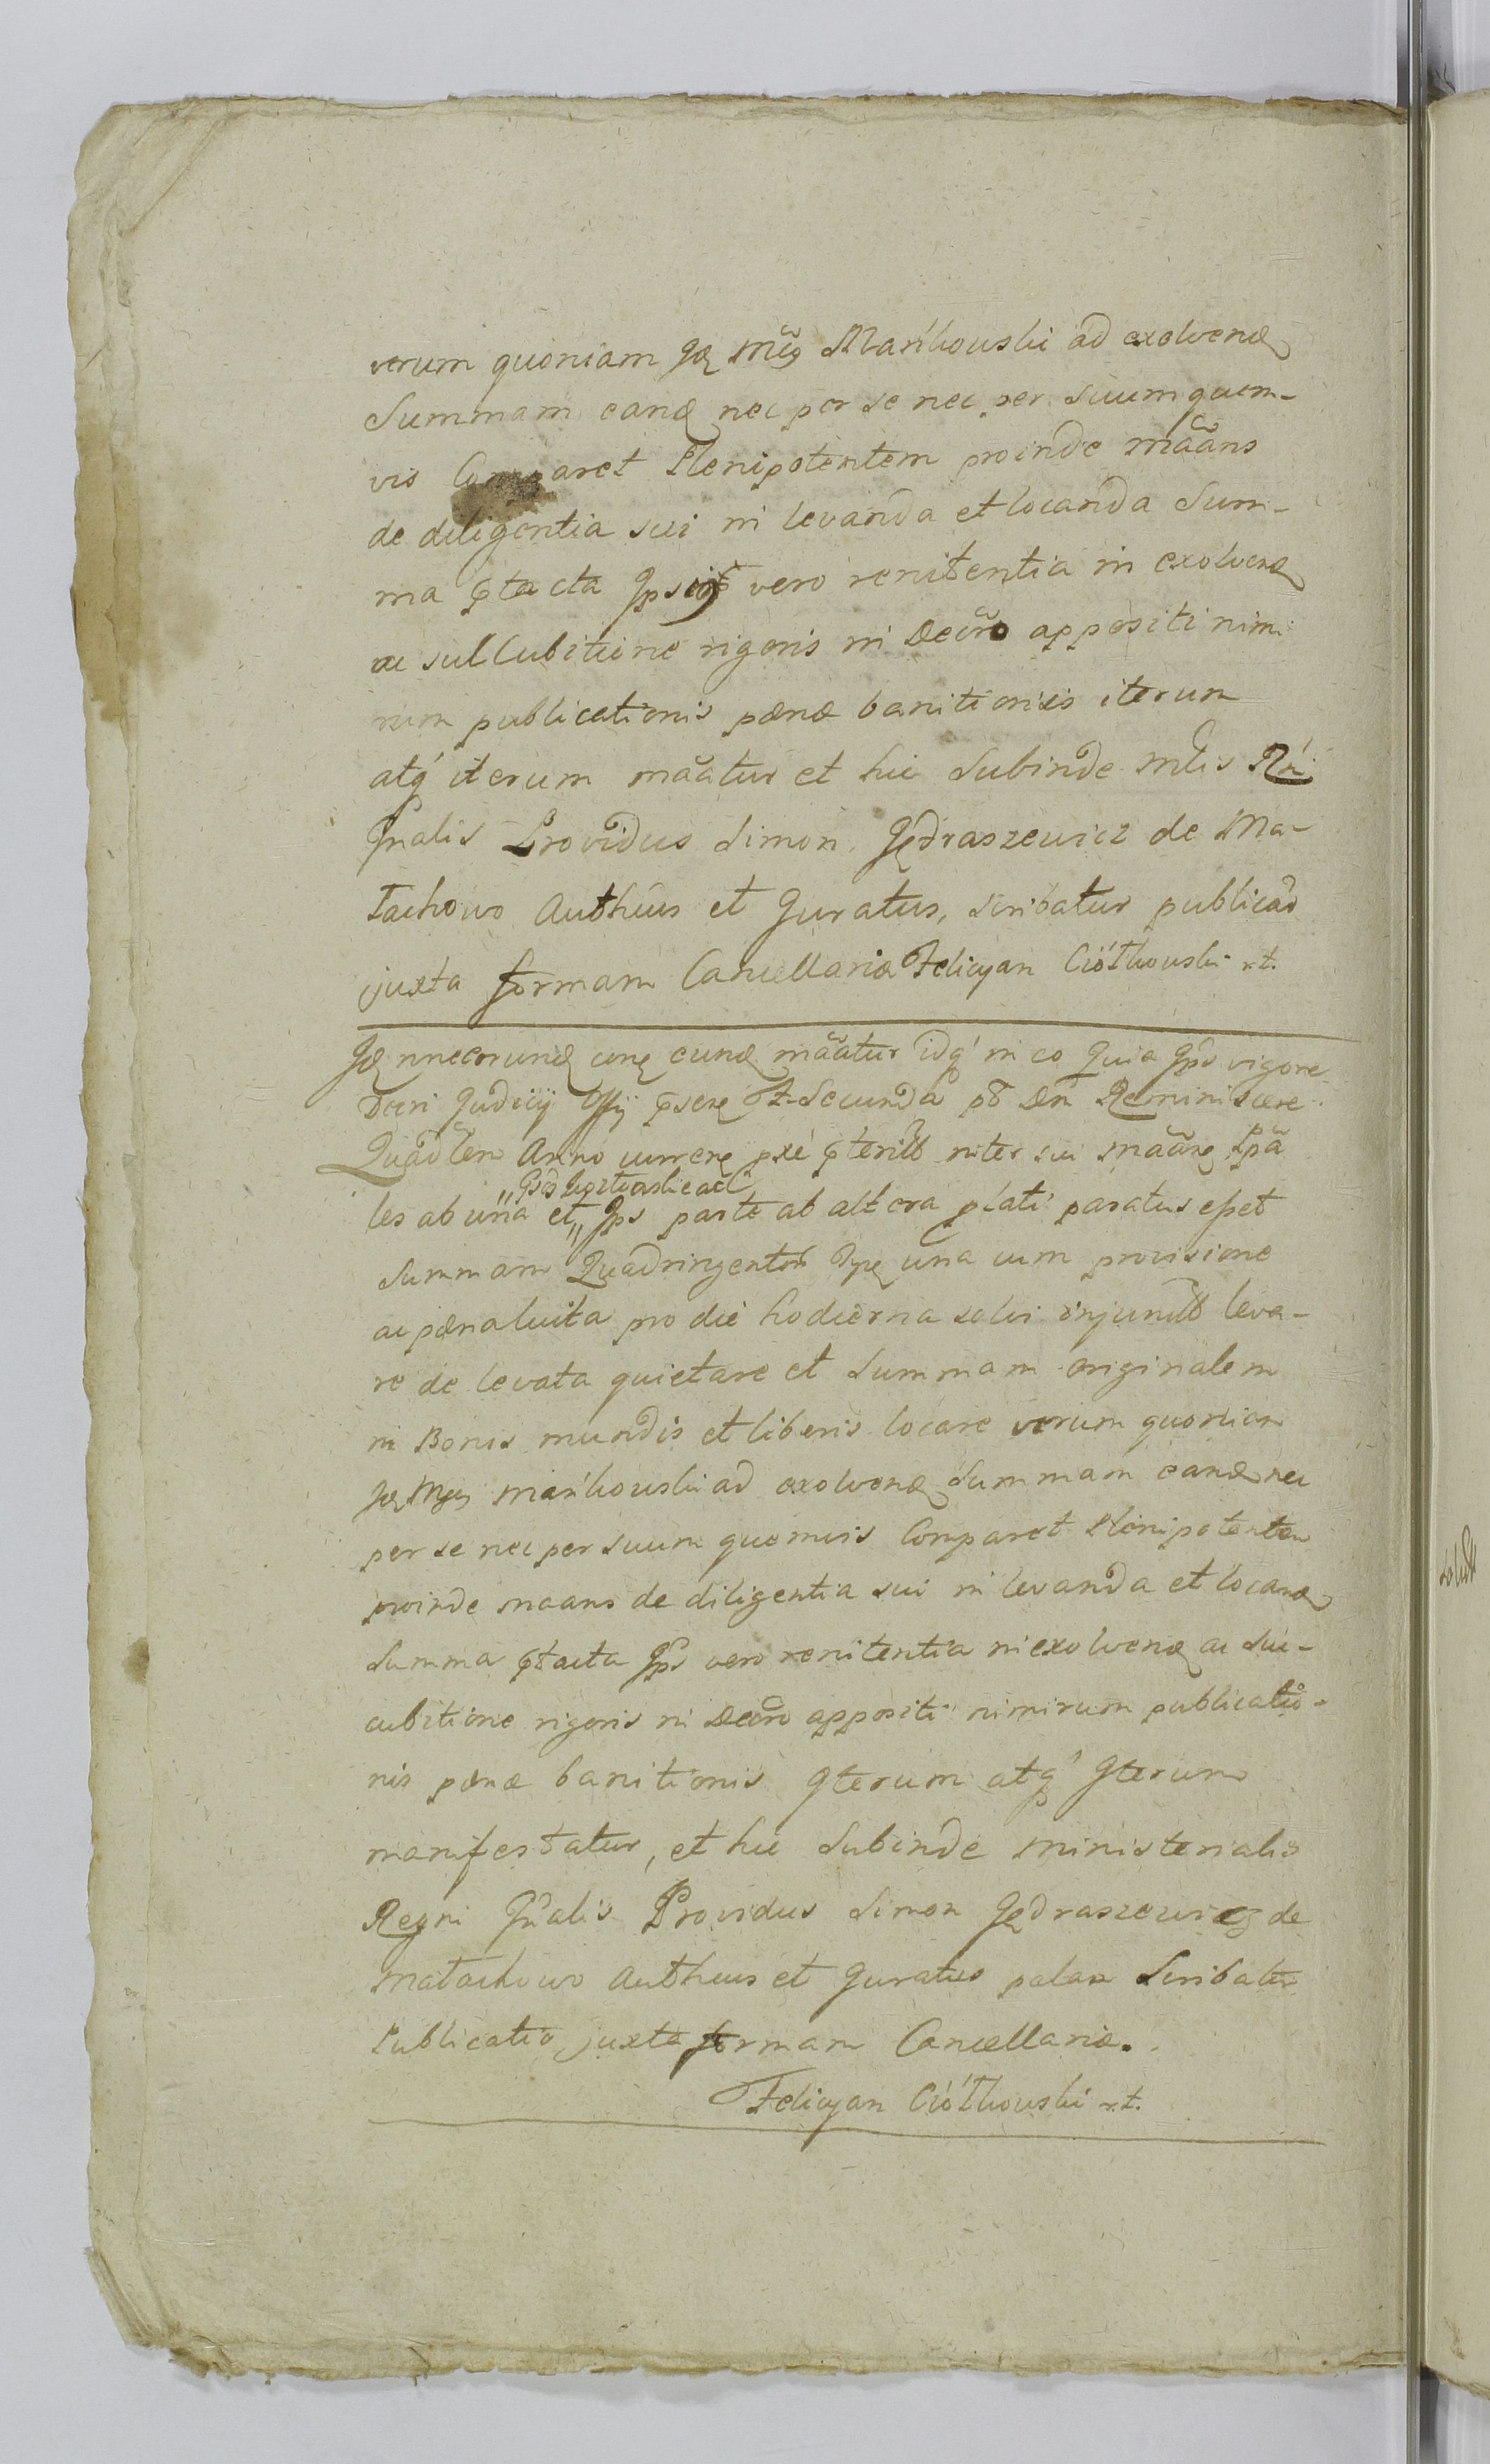 verum quoniam Ide Mgcus Mańkowski ad exolvend
Summam eand nec per se nec per suum quem-
vis Comparet Plenipotentem proinde mããns
de diligentia sui in levanda et locanda Sum-
ma ptacta Ipsius vero renitentia in exolvend
ac sullubitione rigoris in Decro appositi nimi
rum publicationis pænæ banitionis iterum
atq' iterum mããtur et hic Subinde Mtlis Rni
Gnalis Providus Simon Jędraszewicz de Ma-
tachowo Authcus et Juratus, scribatur publicao
juxta formam Cancellariæ Felicyan Ciółkowski rt.
Id nnecorund cone eund mããtur idq' in eo quia Ips vigore
Decri Judicij Offij psen F. Secunda pt Dn Reminiscere
Quadlem Anno curren pxe pterit inter sui Mããn Pã
les ab una et Ips parte ab altera plati paratus esset
Summam Quadringentor Type una cum provisione
ac pænaluita pro die hodierna solvi injunct leva-
re de levata quietare et Summam originalem
in Bonis mundis et liberis locare verum quoniam
Ide Mgcus Mańkowski ad exolvend Summam eand nec
per se nec per suum quemvis Comparet Plenipotentem
proinde maans de diligentia sui in levanda et locand
Summa ptacta Ips vero renitentia in exolvend ac Suc-
cubitione rigoris in Decro appositi nimirum publicatio-
nis pænæ banitionis Iterum atq' Iterum
manifestatur, et hic Subinde Ministerialis
Regni Gnalis Providus Simon Jędraszewicz de
Matachowo Authcus et Juratus palam Scribatur
Publicatio juxta formam Cancellariæ.
Felicyan Ciółkowski rt.